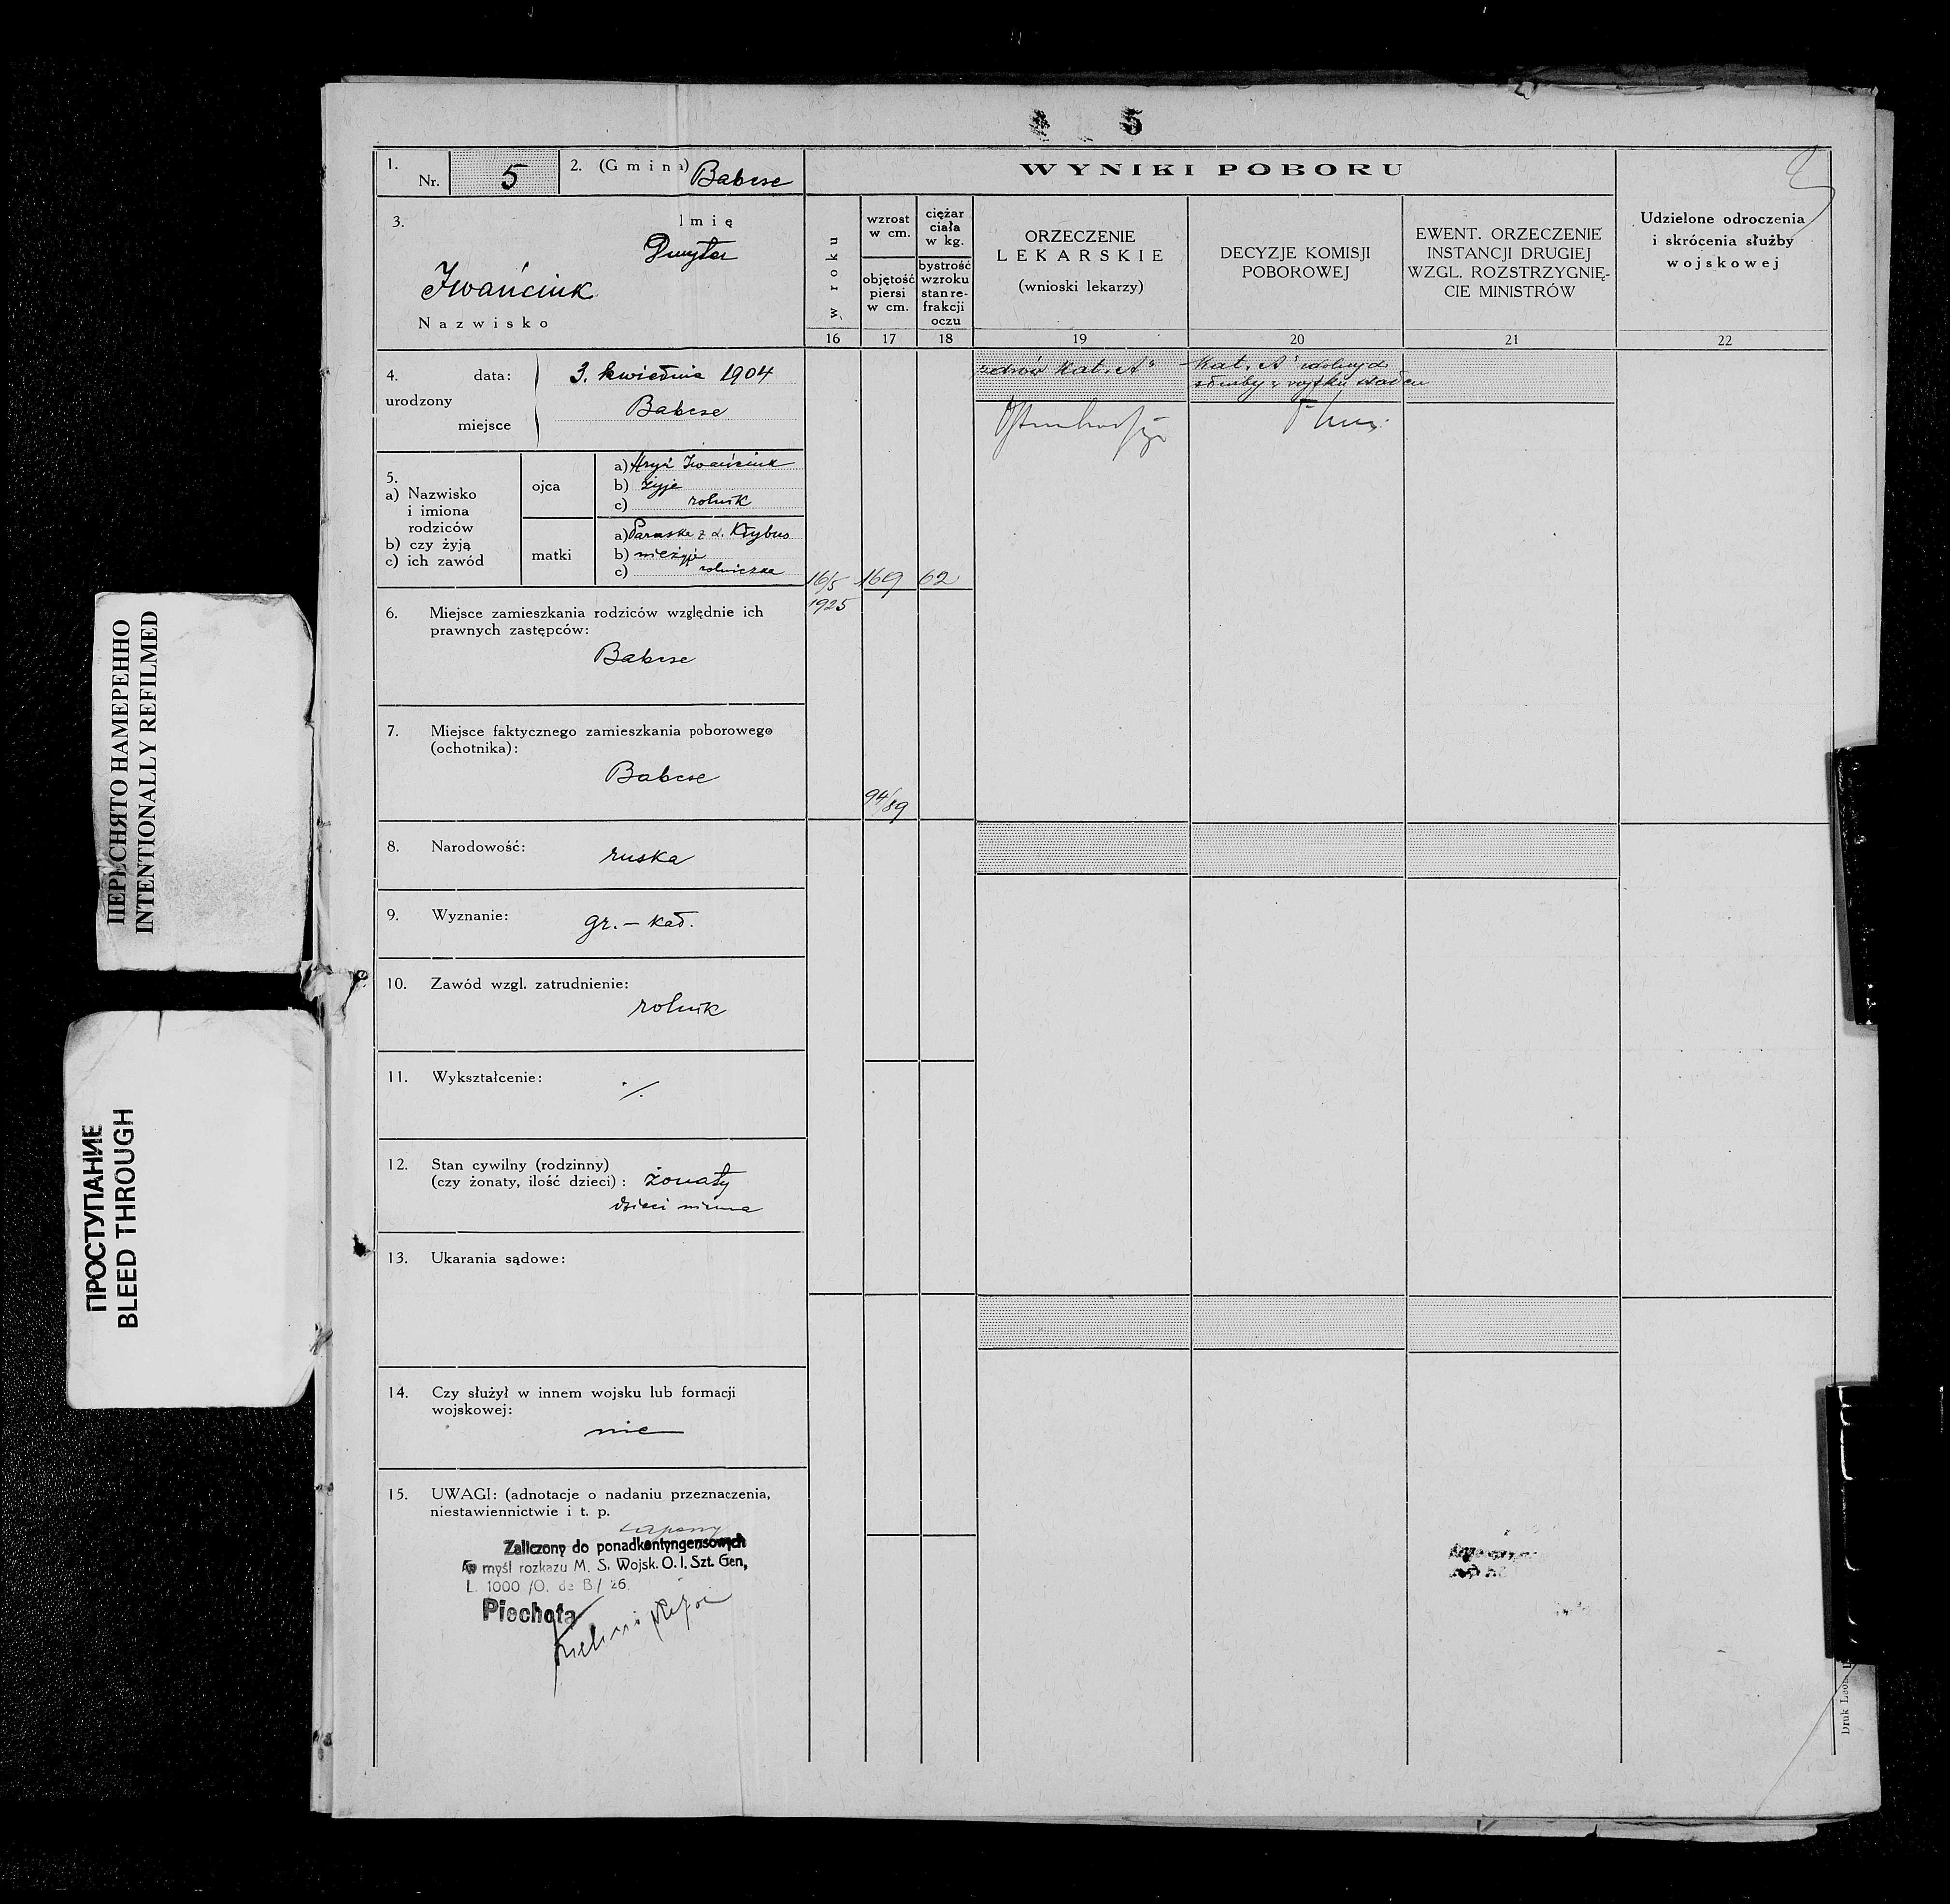 5
1. Nr. 5
2. (Gmina) Babcse
WYNIKI POBORU
3. Imię
Dmyter
Iwańciuk
Nazwisko
w roku
wzrost w cm.
objętość piersi w cm.
ciężar ciała w kg.
bystrość wzroku stan re-frakcji oczu
ORZECZENIE
LEKARSKIE
(wnioski lekarzy)
DECYZJE KOMISJI
POBOROWEJ
EWENT. ORZECZENIE
INSTANCJI DRUGIEJ
WZGL. ROZSTRZYGNIĘ-
CIE MINISTRÓW
Udzielone odroczenia
i skrócenia służby
wojskowej
16 17 18 19 20 21 22
4. urodzony
data: 3. kwietnia 1904
miejsce Babcse
zdrów Kat. „A"
Kat. „A" zdolny do
służby w wojsku stałem
5.
a) Nazwisko
i imiona
rodziców
b) czy żyją
c) ich zawód
ojca
a) Hryń Iwańciuk
b) żyje
c) rolnik
matki
a) Paraska z d. Kłybus
b) nieżyje
c) rolniczka
16/5 169 62
1925
6. Miejsce zamieszkania rodziców względnie ich
prawnych zastępców:
Babcse
7. Miejsce faktycznego zamieszkania poborowego
(ochotnika):
Babcse
94/89
8. Narodowość: ruska
9. Wyznanie: gr. – kat.
10. Zawód wzgl. zatrudnienie:
rolnik
11. Wykształcenie: ./.
12. Stan cywilny (rodzinny)
(czy żonaty, ilość dzieci): żonaty
dzieci niema
13. Ukarania sądowe:
14. Czy służył w innem wojsku lub formacji
wojskowej:
nie
15. UWAGI: (adnotacje o nadaniu przeznaczenia,
niestawiennictwie i t. p.
Zaliczony do ponadkontyngensowych
w myśl rozkazu M. S. Wojsk. O. I. Szt. Gen,
L. 1000 /O. de B/ 26.
Piechota
Druk
ПЕРЕСНЯТО НАМЕРЕННО
INTENTIONALLY REFILMED
ПРОСТУПАНИЕ
BLEED THROUGH